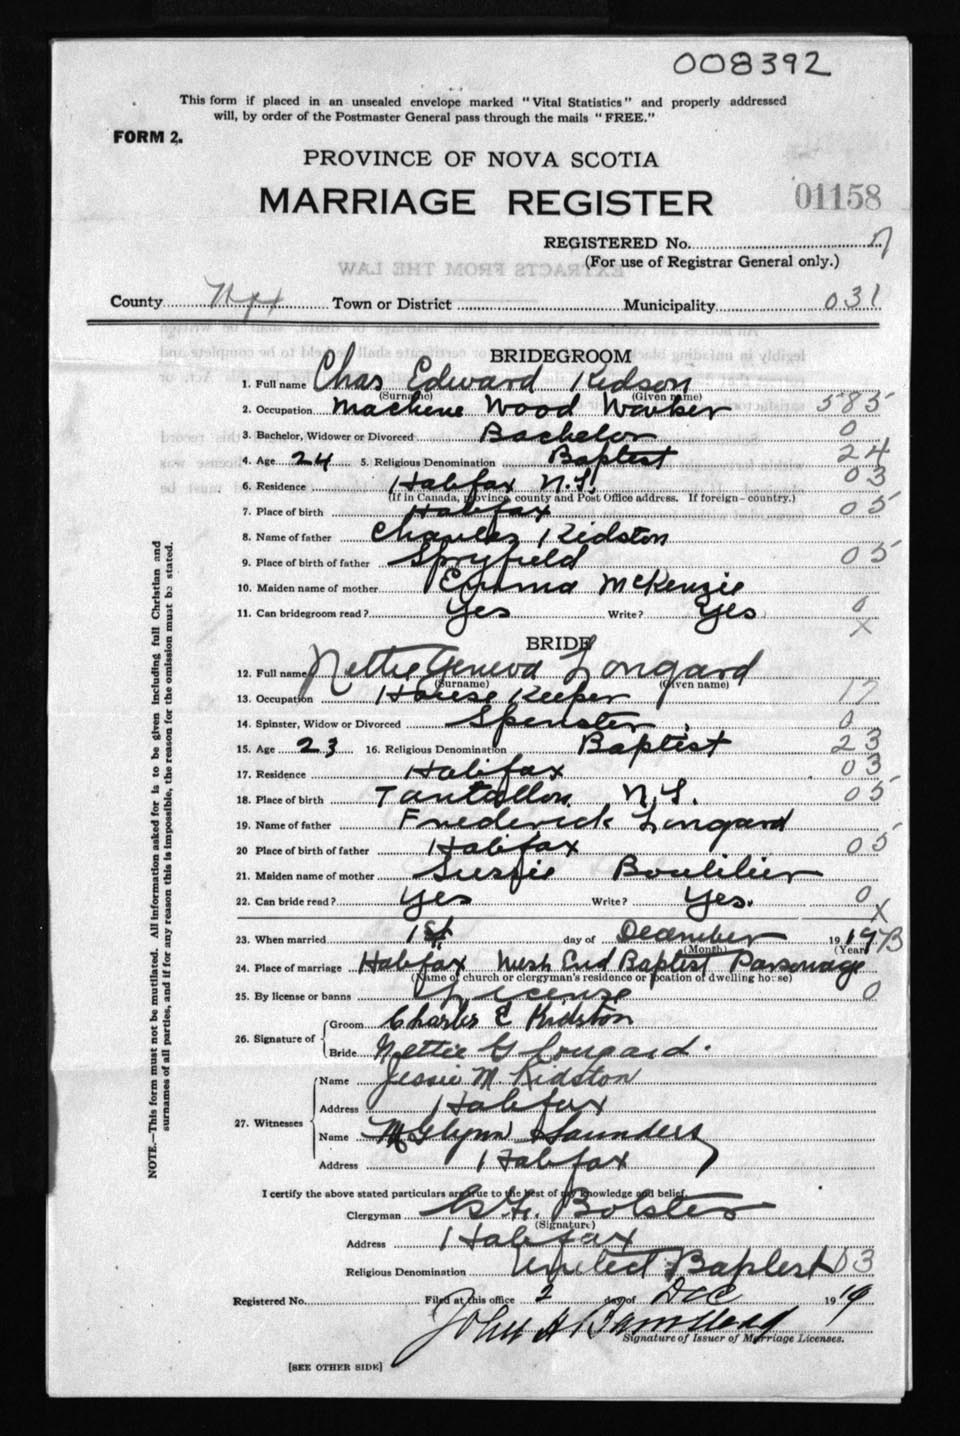 008392
This form if placed in an unsealed envelope marked "Vital Statistics" and properly addressed
will, by order of the Postmaster General pass through the mails "FREE."
FORM 2.
PROVINCE OF NOVA SCOTIA
MARRIAGE REGISTER 01158
REGISTERED No.
(For use of Registrar General only.)
County Hfx Town or District Municipality 031
BRIDEGROOM
1. Full name Chas Edward Kidson
(Surname) (Given name)
2. Occupation Machine Wood Worker 585
3. Bachelor, Widower or Divorced Bachelor 0
4. Age 24 5. Religious Denomination Baptist 24
6. Residence Halifax N.S. 03
(If in Canada, province, county and Post Office address. If foreign - country.)
7. Place of birth Halifax 05
8. Name of father Charles Kidston
9. Place of birth of father Spryfield 05
10. Maiden name of mother Emma McKenzie
11. Can bridegroom read? Yes Write? Yes 0
X
BRIDE
12. Full name Nettie Geneva Longard
(Surname) (Given name)
13. Occupation House Keeper 17
14. Spinster, Widow or Divorced Spinster 0
15. Age 23 16. Religious Denomination Baptist 23
17. Residence Halifax 03
18. Place of birth Tantallon N.S. 05
19. Name of father Frederick Longard
20 Place of birth of father Halifax 05
21. Maiden name of mother Sussie Boutilier
22. Can bride read? Yes Write? Yes. 0
X
23. When married 1st day of December 19 19
(Month) (Year)
24. Place of marriage Halifax West End Baptist Parsonage
(Name of church or clergyman's residence or location of dwelling house)
25. By license or banns License 0
26. Signature of Groom Charles E Kidston
Bride Nettie G Longard.
27. Witnesses Name Jessie M. Kidston
Address Halifax
Name Glynn Saunders
Address Halifax
I certify the above stated particulars are true to the best of my knowledge and belief.
Clergyman Bolster
(Signature)
Address Halifax
Religious Denomination United Baptist 03
Registered No. Filed at this office 2 day of Dec 19 19
John A
Signature of Issuer of Marriage Licenses.
[SEE OTHER SIDE]
NOTE.—This form must not be mutilated. All information asked for is to be given including full Christian and
surnames of all parties, and if for any reason this is impossible, the reason for the omission must be stated.